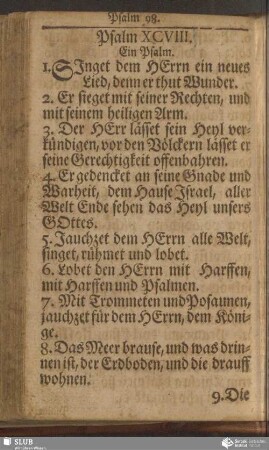 Psalm 98.
Psalm XCVIII.
Ein Psalm.
1. SInget dem HErrn ein neues
Lied, denn er thut Wunder.
2. Er sieget mit seiner Rechten, und
mit seinem heiligen Arm.
3. Der HErr lässet sein Heyl ver-
kündigen, vor den Völckern lässet er
seine Gerechtigkeit offenbahren.
4. Er gedencket an seine Gnade und
Warheit, dem Hause Israel, aller
Welt Ende sehen das Heyl unsers
GOttes.
5. Jauchzet dem HErrn alle Welt,
singet, rühmet und lobet.
6. Lobet den HErrn mit Harffen,
mit Harffen und Psalmen.
7. Mit Trommeten und Posaunen,
jauchzet für dem HErrn, dem Köni-
ge.
8. Das Meer brause, und was drin-
nen ist, der Erdboden, und die drauff
wohnen.
9. Die
SLUB